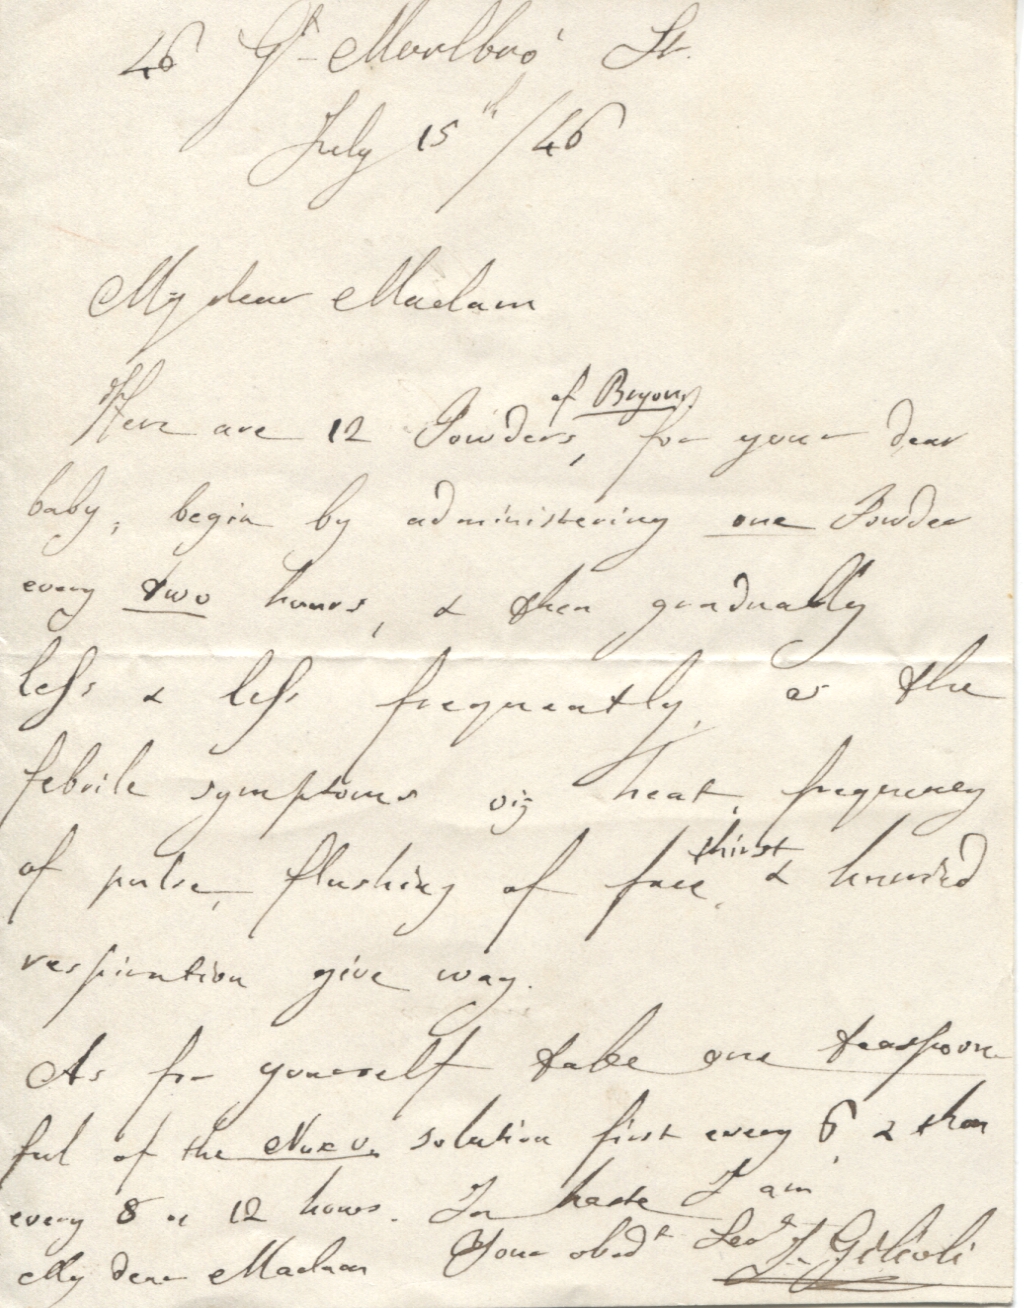 46 Gt Marlbro' St.
July 15th / 46
My dear Madam
Here are 12 Powders, of Bryony for your dear
baby; begin by administering one Powder
every two hours, & then gradually
less & less frequently, as the
febrile symptoms viz heat, frequency
of pulse, flushing of face, thirst & hurried
respiration give way.
As for yourself take one teaspoon
ful of the Nux v. solution first every 6 & then
every 8 or 12 hours. In haste I am
My dear Madam Your obedt